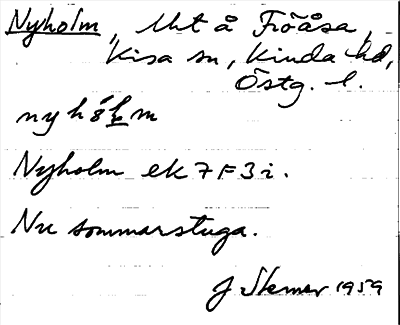 Nyholm, Uht å Fröåsa,
Kisa sn, Kinda hd,
Östg. l.
Nyholm ek 7F3i.
Nu sommarstuga.
1959